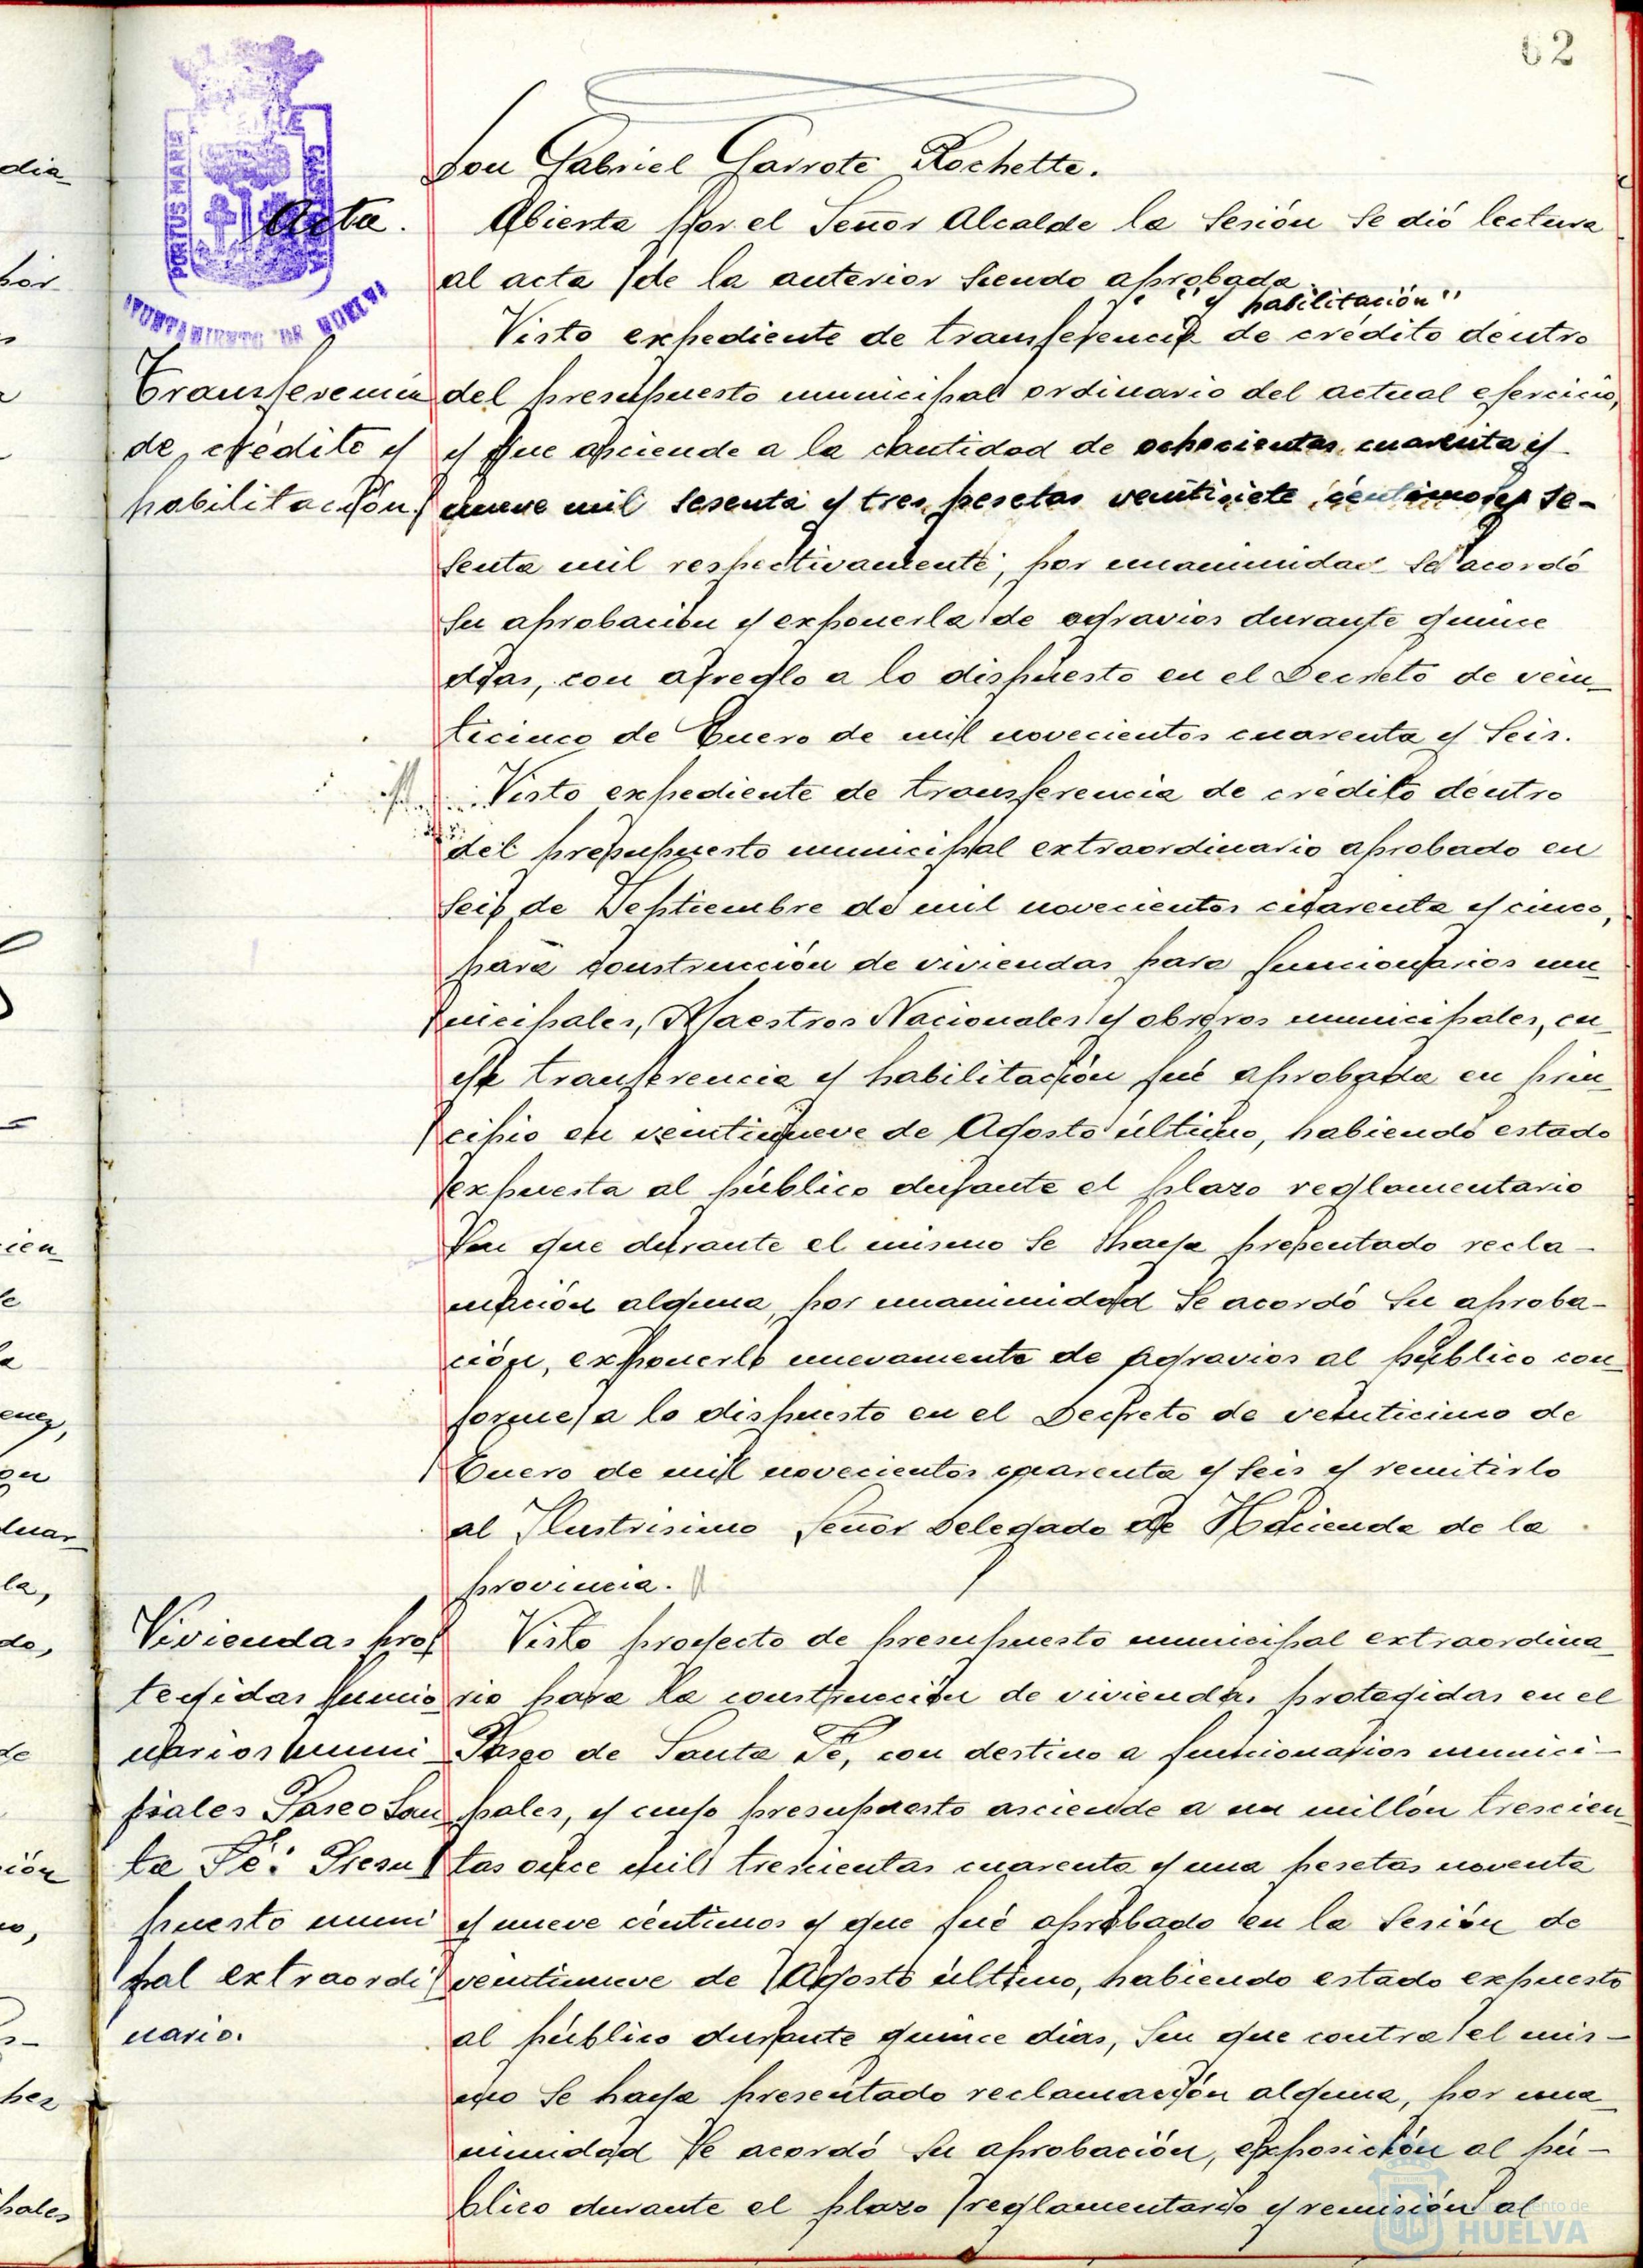 62
Don Gabriel Garrote Rochette.
PORTUS MARIS
CUSTODIA
AYUNTAMIENTO DE HUELVA
Acta.
Abierta por el Señor Alcalde la Sesión se dió lectura
al acta de la anterior siendo aprobada.
" y habilitación"
Visto expediente de transferencia de crédito dentro
Transferencia
de crédito y
habilitación.
del presupuesto municipal ordinario del actual ejercicio,
y que asciende a la cantidad de ochocientas cuarenta y
nueve mil sesenta y tres pesetas veintisiete céntimos y se-
senta mil respectivamente, por unanimidad se acordó
su aprobación y exponerla de agravios durante quince
días, con arreglo a lo dispuesto en el Decreto de vein-
ticinco de Enero de mil novecientos cuarenta y seis.
Visto expediente de transferencia de crédito dentro
del presupuesto municipal extraordinario aprobado en
seis de Septiembre de mil novecientos cuarenta y cinco,
para construcción de viviendas para funcionarios mu-
nicipales, Maestros Nacionales y obreros municipales, cu-
ya transferencia y habilitación fué aprobada en prin-
cipio en veintinueve de Agosto último, habiendo estado
expuesta al público durante el plazo reglamentario
sin que durante el mismo se haya presentado recla-
mación alguna, por unanimidad se acordó su aproba-
ción, exponerlo nuevamente de agravios al público con-
forme a lo dispuesto en el Decreto de veinticinco de
Enero de mil novecientos cuarenta y seis y remitirlo
al Ilustrisimo Señor Delegado de Hacienda de la
provincia.
Viviendas pro
tegidas funcio
narios muni
pales Paseo San
ta Fé: Presu
puesto muni
pal extraordi
nario.
Visto proyecto de presupuesto municipal extraordina-
rio para la construcción de viviendas protegidas en el
Paseo de Santa Fé, con destino a funcionarios munici-
pales, y cuyo presupuesto asciende a un millón trescien-
tas once mil trescientas cuarenta y una pesetas noventa
y nueve céntimos y que fué aprobado en la Sesión de
veintinueve de Agosto último, habiendo estado expuesto
al público durante quince días, sin que contra el mis-
mo se haya presentado reclamación alguna, por una-
nimidad se acordó su aprobación, exposición al pú-
blico durante el plazo reglamentario y remisión al
Ayuntamiento de
HUELVA